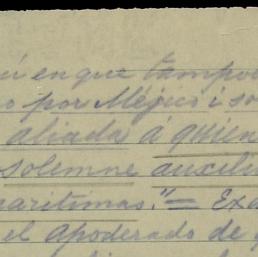 en que tampo
por Méjico i so
aliada á quien
solemne auxili
maritimas." = Ex
el apoderado de